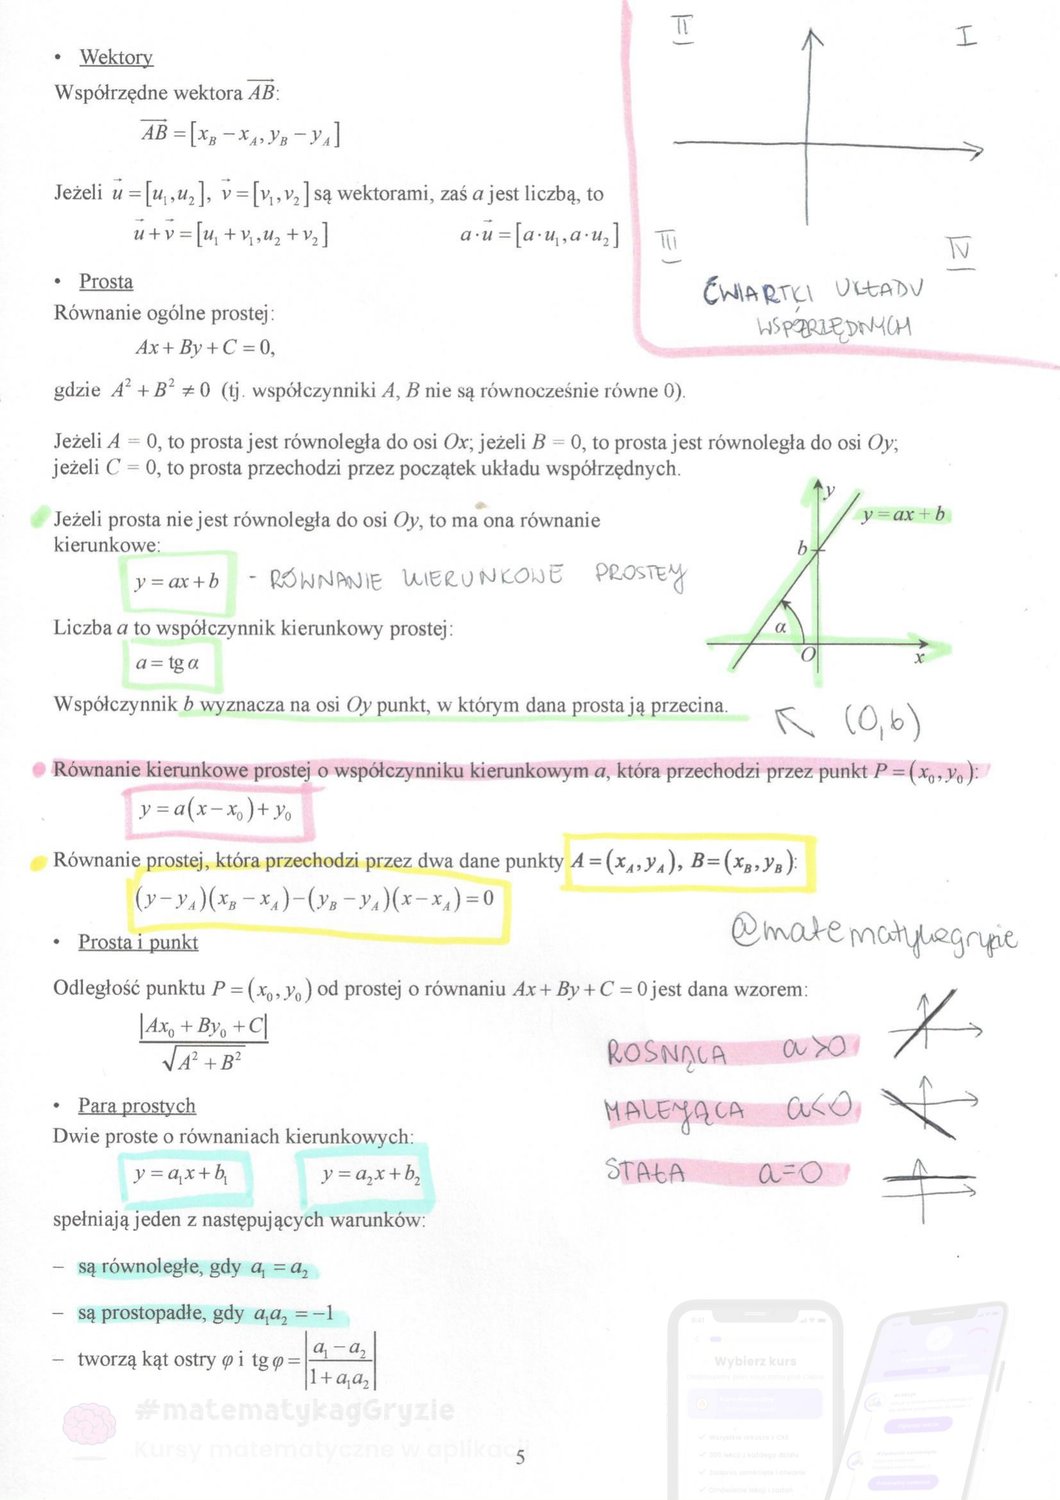 II
I
• Wektory
Współrzędne wektora AB:
AB = [x_B − x_A, y_B − y_A]
Jeżeli u = [u₁, u₂], v = [v₁, v₂] są wektorami, zaś a jest liczbą, to
u + v = [u₁ + v₁, u₂ + v₂] a·u = [a·u₁, a·u₂]
III
IV
ĆWIARTKI UKŁADU
WSPÓŁRZĘDNYCH
• Prosta
Równanie ogólne prostej:
Ax + By + C = 0,
gdzie A² + B² ≠ 0 (tj. współczynniki A, B nie są równocześnie równe 0).
Jeżeli A = 0, to prosta jest równoległa do osi Ox; jeżeli B = 0, to prosta jest równoległa do osi Oy;
jeżeli C = 0, to prosta przechodzi przez początek układu współrzędnych.
Jeżeli prosta nie jest równoległa do osi Oy, to ma ona równanie
kierunkowe:
y = ax + b - RÓWNANIE KIERUNKOWE PROSTEJ
y
y = ax + b
b
α
O
x
Liczba a to współczynnik kierunkowy prostej:
a = tg α
Współczynnik b wyznacza na osi Oy punkt, w którym dana prosta ją przecina.
(0,b)
Równanie kierunkowe prostej o współczynniku kierunkowym a, która przechodzi przez punkt P = (x₀, y₀):
y = a(x − x₀) + y₀
Równanie prostej, która przechodzi przez dwa dane punkty A = (x_A, y_A), B = (x_B, y_B):
(y − y_A)(x_B − x_A) − (y_B − y_A)(x − x_A) = 0
@matematykagryzie
• Prosta i punkt
Odległość punktu P = (x₀, y₀) od prostej o równaniu Ax + By + C = 0 jest dana wzorem:
|Ax₀ + By₀ + C|
√A² + B²
ROSNĄCA a>0
MALEJĄCA a<0
STAŁA a=0
• Para prostych
Dwie proste o równaniach kierunkowych:
y = a₁x + b₁ y = a₂x + b₂
spełniają jeden z następujących warunków:
– są równoległe, gdy a₁ = a₂
– są prostopadłe, gdy a₁a₂ = −1
– tworzą kąt ostry φ i tg φ = |(a₁ − a₂)/(1 + a₁a₂)|
#matematykagGryzie
Kursy matematyczne w aplikacji
Wybierz kurs
5